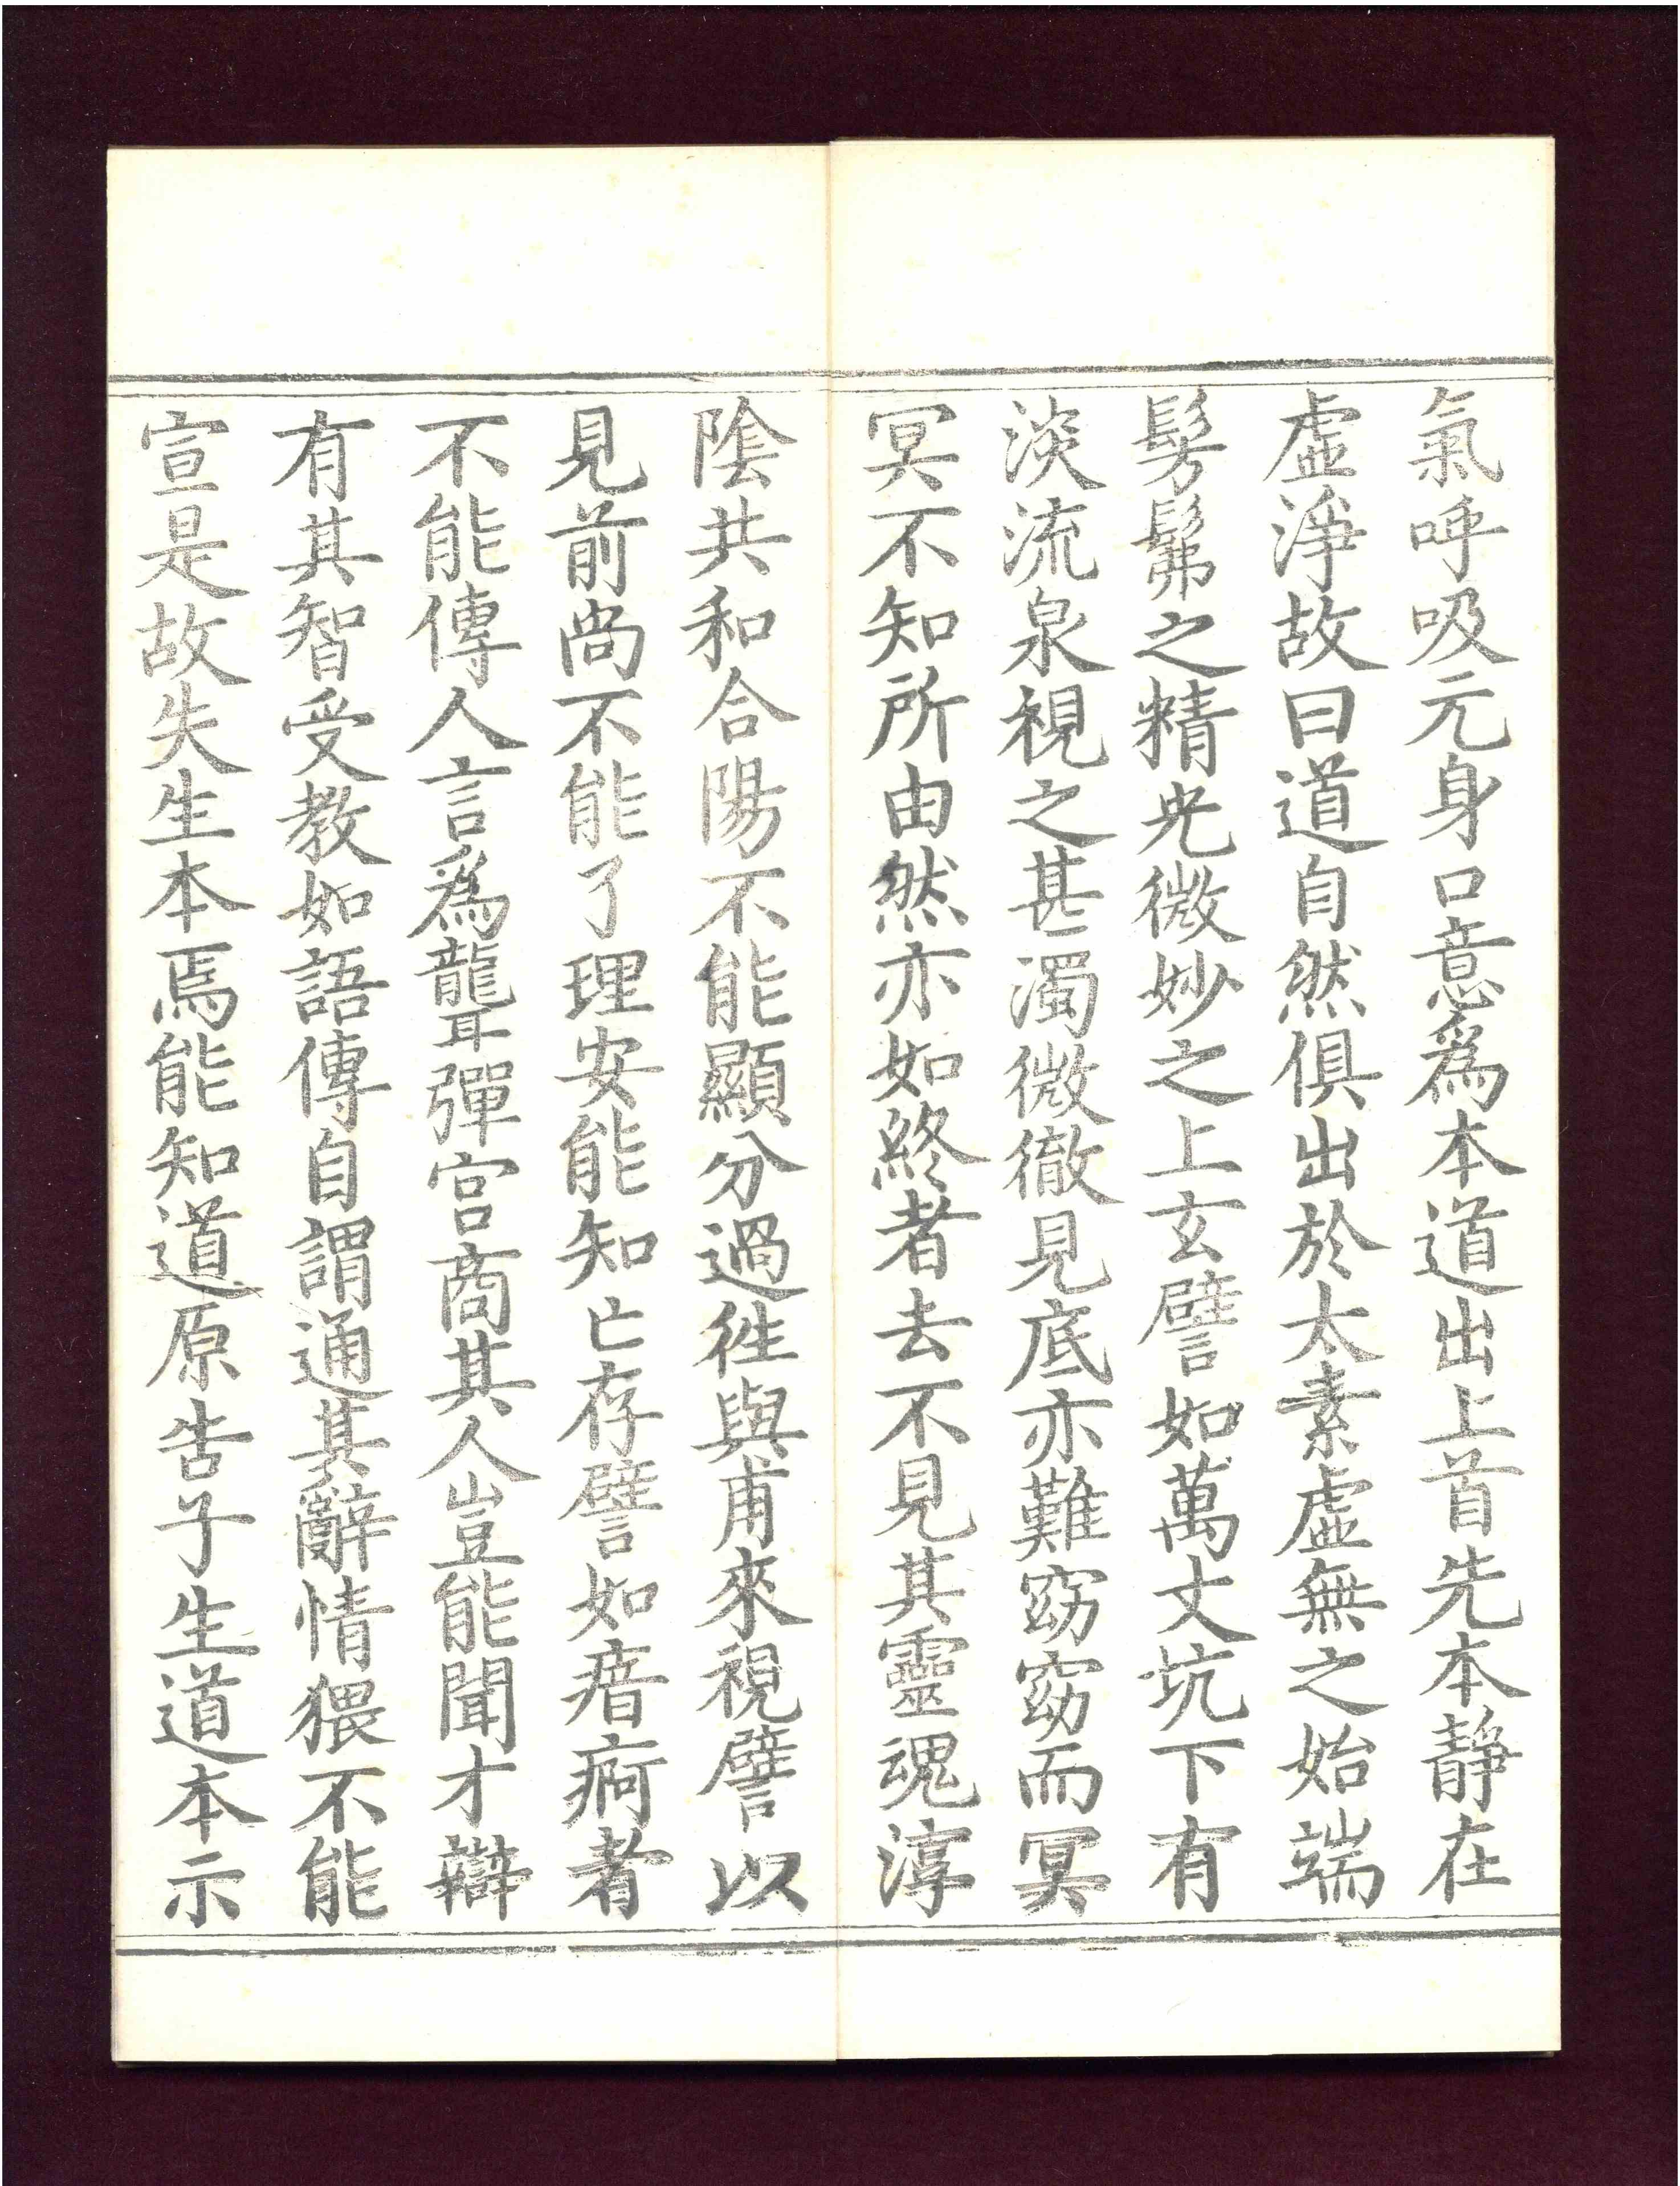 氣呼吸元身口意爲本道出上首先本靜在
虛淨故曰道自然俱出於太素虛無之始端
髣髴之精光微妙之上玄譬如萬丈坑下有
淡流泉視之甚濁微徹見底亦難窈窈而冥
冥不知所由然亦如終者去不見其靈魂淳
陰共和合陽不能顯分過徃與甫來視譬以
見前尚不能了理安能知亡存譬如瘖瘂者
不能傳人言爲聾彈宮商其人豈能聞才辯
有其智受教如語傳自謂通其辭情猥不能
宣是故失生本焉能知道原告子生道本示